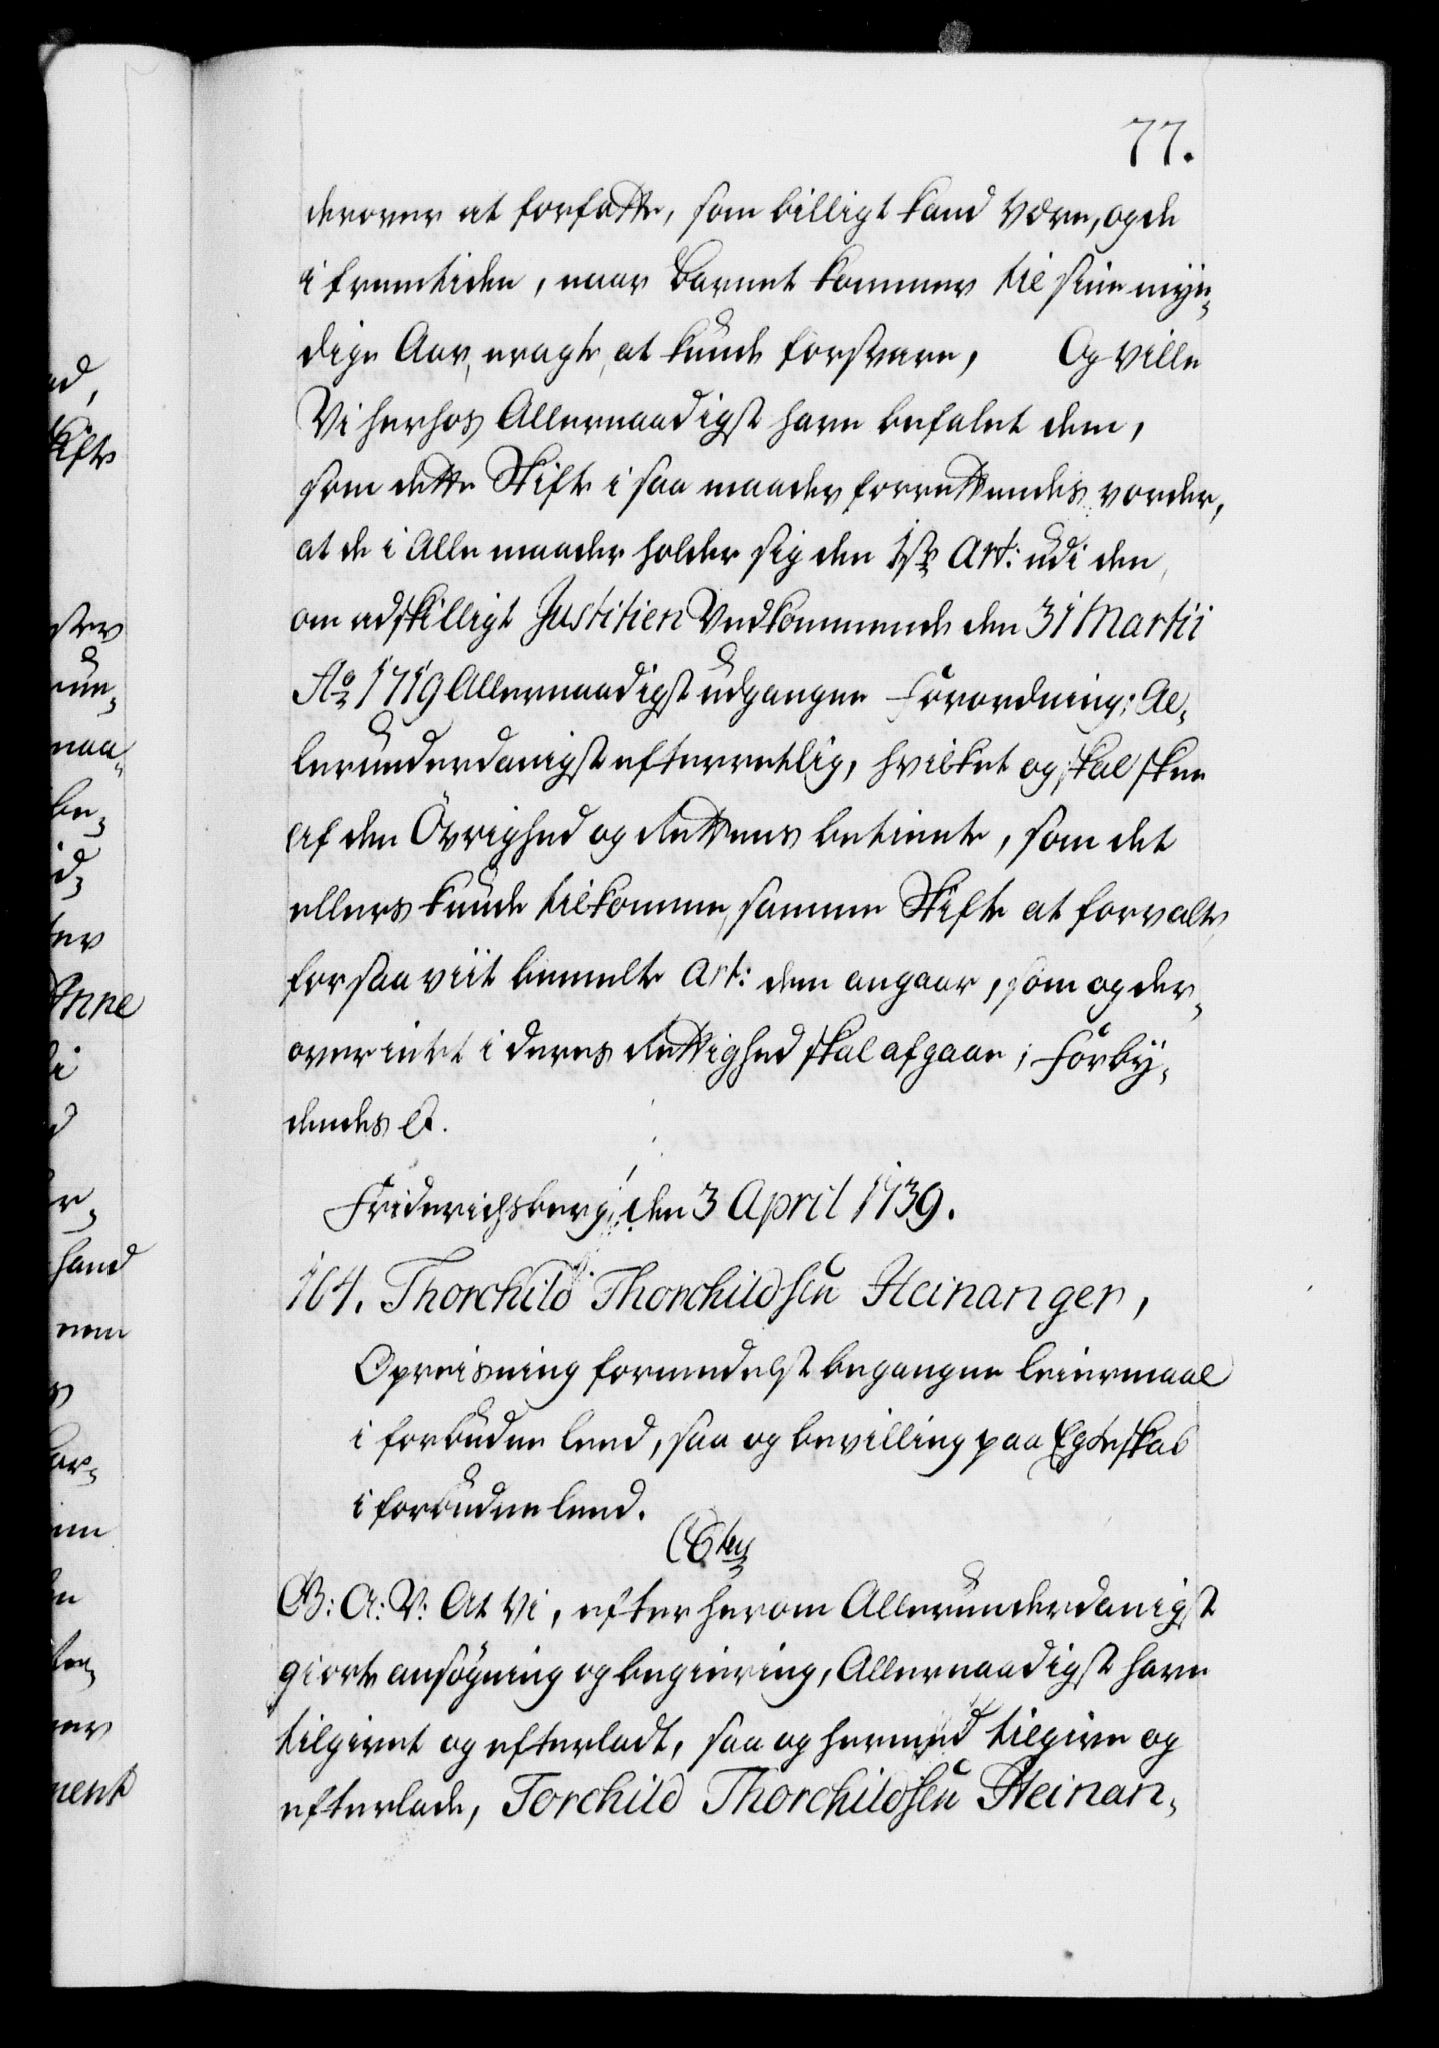 77.
derover at forfatte, som billigt kand være, og de
i fremtiden, naar Barnet kommer til sine myn,
dige Aar, eragte at kunde forsvare, Og ville
Vi herhos Allernaadigst have befalet dem,
som dette Skifte i saa maader forrettendes vorder,
at de i Alle maader holder sig den 1ste Art: udi den
om adskilligt Justitien Vedkommende den 31 Martii
Ao 1719 Allernaadigst udgangne Forordning; Al,
lerunderdanigst efterretlig, hvilket og skal skee
af den Övrighed og Rettens betiente, som det
ellers kunde tilkomme, samme Skifte at forvalte,
forsaaviit bemelte Art: dem angaar, som og der,
over intet i deres Rettighed skal afgaae; Forby,
dendes &.
Friderichsberg, den 3 April 1739.
164. Thorchild Thorchildsen Heinanger,
Opreisning formedelst begangne leiermaal
i forbudne leed, saa og bevilling paa Egteskab
i forbudne leed.
C 6tus
G: A: V: At Vi, efter herom Allerunderdanigst
giorte ansögning og begiering, Allernaadigst have
tilgivet og efterladt, saa og hermed tilgive og
efterlade, Torchild Thorchildsen Heinan,